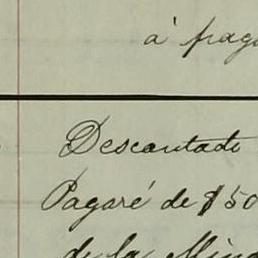 á pag
Descontado
Pagaré de $50
de la Min